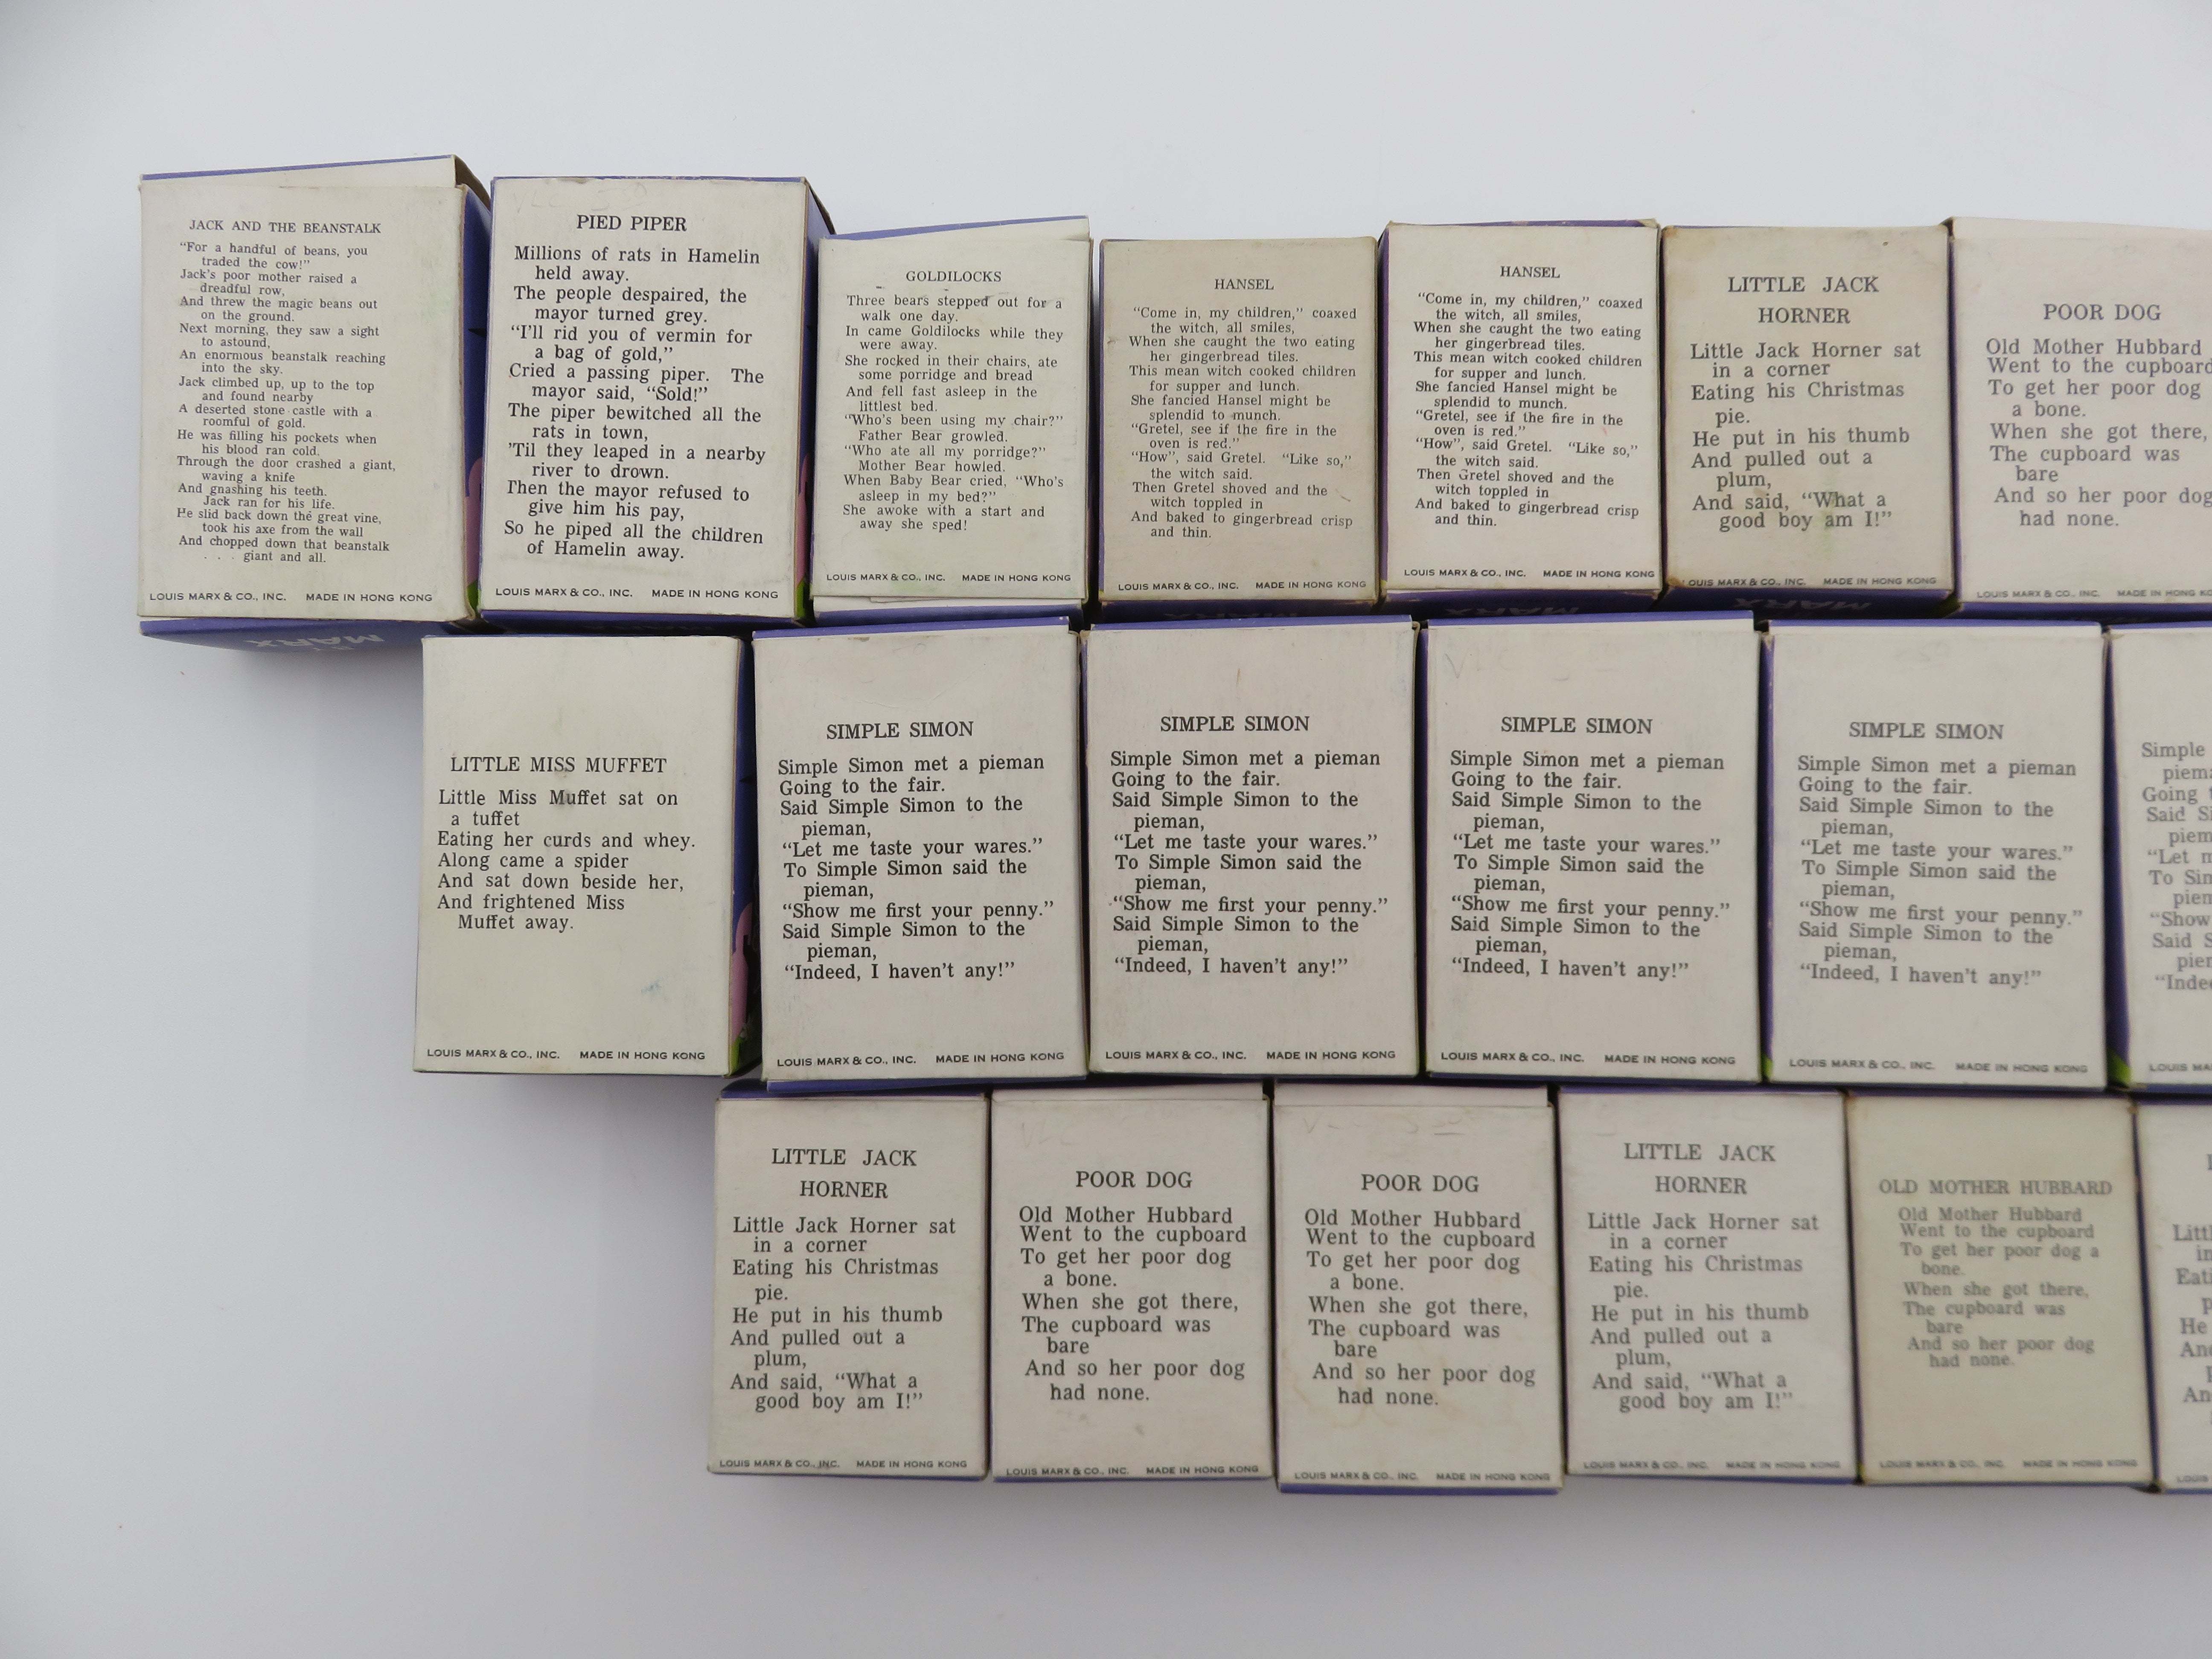 JACK AND THE BEANSTALK
“For a handful of beans, you
traded the cow!”
Jack's poor mother raised a
dreadful row,
And threw the magic beans out
on the ground.
Next morning, they saw a sight
to astound,
An enormous beanstalk reaching
into the sky.
Jack climbed up, up to the top
and found nearby
A deserted stone castle with a
roomful of gold.
He was filling his pockets when
his blood ran cold.
Through the door crashed a giant,
waving a knife
And gnashing his teeth.
Jack ran for his life.
He slid back down the great vine,
took his axe from the wall
And chopped down that beanstalk
. . . giant and all.
LOUIS MARX & CO., INC. MADE IN HONG KONG
MARX
PIED PIPER
Millions of rats in Hamelin
held away.
The people despaired, the
mayor turned grey.
“I'll rid you of vermin for
a bag of gold,”
Cried a passing piper. The
mayor said, “Sold!”
The piper bewitched all the
rats in town,
'Til they leaped in a nearby
river to drown.
Then the mayor refused to
give him his pay,
So he piped all the children
of Hamelin away.
LOUIS MARX & CO., INC. MADE IN HONG KONG
GOLDILOCKS
Three bears stepped out for a
walk one day.
In came Goldilocks while they
were away.
She rocked in their chairs, ate
some porridge and bread
And fell fast asleep in the
littlest bed.
“Who's been using my chair?”
Father Bear growled.
“Who ate all my porridge?”
Mother Bear howled.
When Baby Bear cried, “Who's
asleep in my bed?”
She awoke with a start and
away she sped!
LOUIS MARX & CO., INC. MADE IN HONG KONG
HANSEL
“Come in, my children,” coaxed
the witch, all smiles,
When she caught the two eating
her gingerbread tiles.
This mean witch cooked children
for supper and lunch.
She fancied Hansel might be
splendid to munch.
“Gretel, see if the fire in the
oven is red.”
“How”, said Gretel. “Like so,”
the witch said.
Then Gretel shoved and the
witch toppled in
And baked to gingerbread crisp
and thin.
LOUIS MARX & CO., INC. MADE IN HONG KONG
MARX
HANSEL
“Come in, my children,” coaxed
the witch, all smiles,
When she caught the two eating
her gingerbread tiles.
This mean witch cooked children
for supper and lunch.
She fancied Hansel might be
splendid to munch.
“Gretel, see if the fire in the
oven is red.”
“How”, said Gretel. “Like so,”
the witch said.
Then Gretel shoved and the
witch toppled in
And baked to gingerbread crisp
and thin.
LOUIS MARX & CO., INC. MADE IN HONG KONG
MARX
LITTLE JACK
HORNER
Little Jack Horner sat
in a corner
Eating his Christmas
pie.
He put in his thumb
And pulled out a
plum,
And said, “What a
good boy am I!”
LOUIS MARX & CO., INC. MADE IN HONG KONG
MARX
POOR DOG
Old Mother Hubbard
Went to the cupboard
To get her poor dog
a bone.
When she got there,
The cupboard was
bare
And so her poor dog
had none.
LOUIS MARX & CO., INC. MADE IN HONG
LITTLE MISS MUFFET
Little Miss Muffet sat on
a tuffet
Eating her curds and whey.
Along came a spider
And sat down beside her,
And frightened Miss
Muffet away.
LOUIS MARX & CO., INC. MADE IN HONG KONG
SIMPLE SIMON
Simple Simon met a pieman
Going to the fair.
Said Simple Simon to the
pieman,
“Let me taste your wares.”
To Simple Simon said the
pieman,
“Show me first your penny.”
Said Simple Simon to the
pieman,
“Indeed, I haven't any!”
LOUIS MARX & CO., INC. MADE IN HONG KONG
SIMPLE SIMON
Simple Simon met a pieman
Going to the fair.
Said Simple Simon to the
pieman,
“Let me taste your wares.”
To Simple Simon said the
pieman,
“Show me first your penny.”
Said Simple Simon to the
pieman,
“Indeed, I haven't any!”
LOUIS MARX & CO., INC. MADE IN HONG KONG
SIMPLE SIMON
Simple Simon met a pieman
Going to the fair.
Said Simple Simon to the
pieman,
“Let me taste your wares.”
To Simple Simon said the
pieman,
“Show me first your penny.”
Said Simple Simon to the
pieman,
“Indeed, I haven't any!”
LOUIS MARX & CO., INC. MADE IN HONG KONG
SIMPLE SIMON
Simple Simon met a pieman
Going to the fair.
Said Simple Simon to the
pieman,
“Let me taste your wares.”
To Simple Simon said the
pieman,
“Show me first your penny.”
Said Simple Simon to the
pieman,
“Indeed, I haven't any!”
LOUIS MARX & CO., INC. MADE IN HONG KONG
Simple
Going
Said
“Let
To
“Show
Said
LOUIS
LITTLE JACK
HORNER
Little Jack Horner sat
in a corner
Eating his Christmas
pie.
He put in his thumb
And pulled out a
plum,
And said, “What a
good boy am I!”
LOUIS MARX & CO., INC. MADE IN HONG KONG
POOR DOG
Old Mother Hubbard
Went to the cupboard
To get her poor dog
a bone.
When she got there,
The cupboard was
bare
And so her poor dog
had none.
LOUIS MARX & CO., INC. MADE IN HONG KONG
POOR DOG
Old Mother Hubbard
Went to the cupboard
To get her poor dog
a bone.
When she got there,
The cupboard was
bare
And so her poor dog
had none.
LOUIS MARX & CO., INC. MADE IN HONG KONG
LITTLE JACK
HORNER
Little Jack Horner sat
in a corner
Eating his Christmas
pie.
He put in his thumb
And pulled out a
plum,
And said, “What a
good boy am I!”
LOUIS MARX & CO., INC. MADE IN HONG KONG
OLD MOTHER HUBBARD
Old Mother Hubbard
Went to the cupboard
To get her poor dog a
bone.
When she got there,
The cupboard was
bare
And so her poor dog
had none.
LOUIS MARX & CO., INC. MADE IN HONG KONG
He